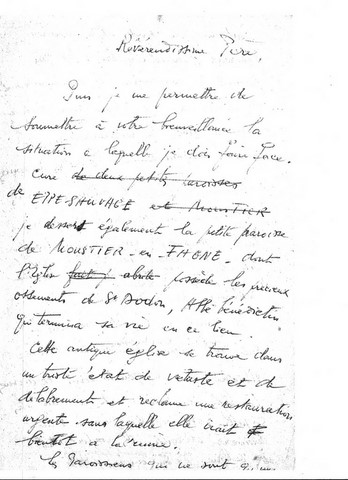 Révérendissime Père,
Puis je me permettre de
soumettre à votre bienveillance la
situation a laquelle je dois faire face.
Curé de deux petites paroisses
de EPPE-SAUVAGE et MOUSTIER
je dessert également la petite paroisse
de MOUSTIER-en-FAGNE dont
l'Eglise abrite possède les précieux
ossements de St Dodon, Abbé bénédictin
qui termina sa vie en ce lieu.
Cette antique église se trouve dans
un triste état de vetuste et de
délabrement et réclame une restauration
urgente sans laquelle elle irait
bientôt à la ruine.
Les Paroissiens qui ne sont